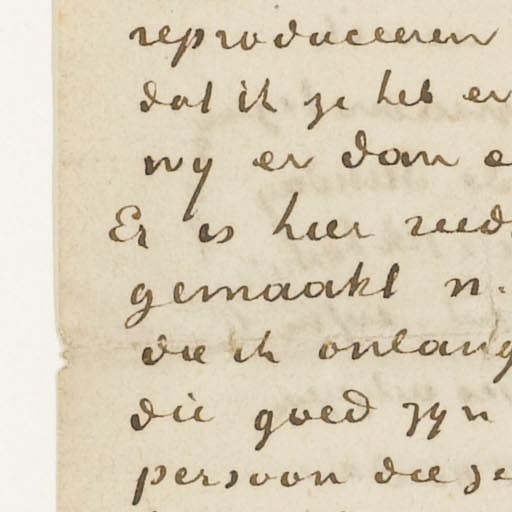 reproduceeren
dat ik ze heb er
wy er dan e
Er is hier reeds
gemaakt n.
die ik onlang
die goed zyn
persoon die ze